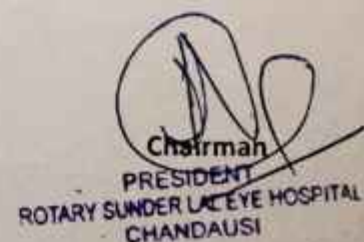 Chairman
PRESIDENT
ROTARY SUNDER LAL EYE HOSPITAL
CHANDAUSI